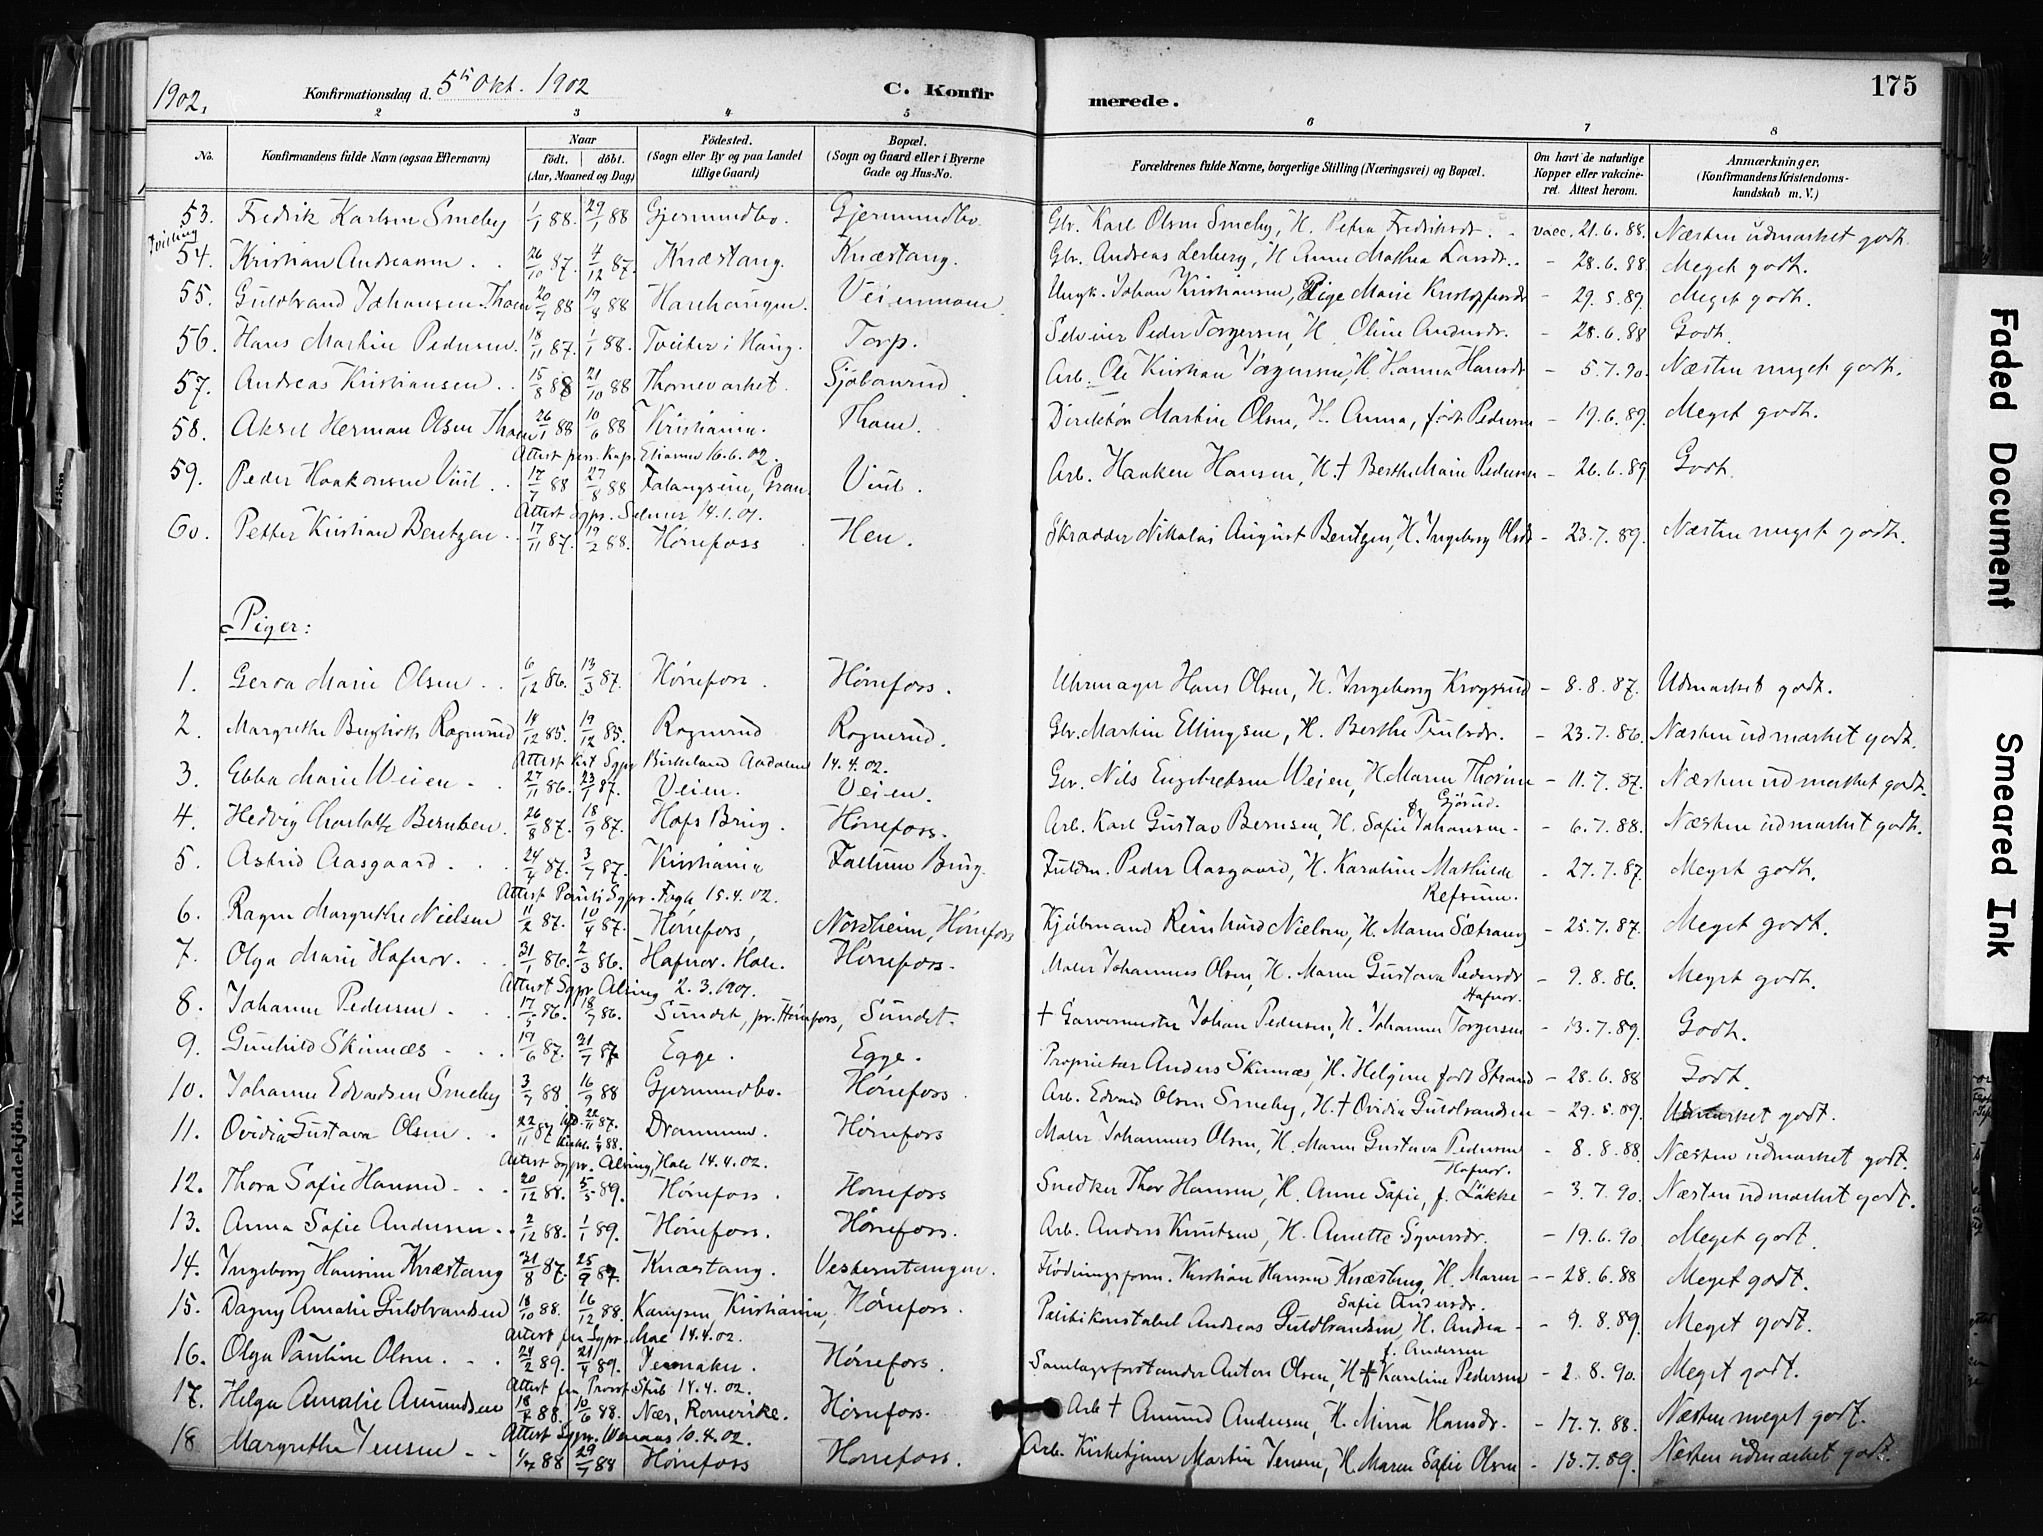 1902. Konfirmationsdag d. 5te Okt. 1902 C. Konfirmerede. 175
2 3 4 5 6 7 8
No. Konfirmandens fulde Navn (ogsaa Efternavn) Naar födt. döbt. (Aar, Maaned og Dag) Födested. (Sogn eller By og paa Landet tillige Gaard) Bopæl. (Sogn og Gaard eller i Byerne Gade og Hus-No. Forældrenes fulde Navne, borgerlige Stilling (Næringsvei) og Bopæl. Om havt de naturlige Kopper eller vakcineret. Attest herom. Anmærkninger, (Konfirmandens Kristendomskundskab m. V.)
53. Fredrik Karlsen Smeby 1/1 88. 29/1 88 Gjermundbo. Gjermundbo. Gbr. Karl Olsen Smeby, H. Petra Fredriksdr. vacc. 21.6.88. Næsten udmærket godt.
54. Kristian Andreassen 26/10 87. 4/12 87. Knæstang. Knæstang. Gbr. Andreas Lerberg, H. Anne Mathea Larsdr. - 28.6.88. Meget godt.
55. Guldbrand Johansen Tham 20/7 88 19/8 88 Harehaugen. Veienmoen Ungk. Johan Kristiansen, Pige Marie Kristoffersdr - 29.5.89. Meget godt.
56. Hans Martin Pedersen. 18/11 87. 1/1 88. Tveiter i Haug. Torp. Selveier Peder Torgersen, H. Oline Andersdr. - 28.6.88 Godt.
57. Andreas Kristiansen 15/8 88 21/10 88 Thornevarket. Gjøbonrud Arb. Ole Kristian Jørgensen, H. Hanna Hansdr. - 5.7.90. Næsten meget godt.
58. Aksel Herman Olsen Tham 26/1 88 10/6 88 Kristiania. Tham. Direktør Martin Olsen, H. Anna, født Pedersen - 19.6.89. Meget godt.
Attest pers. kap. Eliassen 16.6.02.
59. Peder Haakonsen Viul 17/7 88 27/8 88 Falangseie, Gran Viul. Arb. Haaken Hansen, H. † Berthe Marie Pedersen - 26.6.89 Godt.
Attest Sgpr. Selmer 14.1.01.
60. Petter Kristian Bentzen 17/11 87. 19/2 88. Hønefoss Hen. Skrædder Nikolai August Bentzen, H. Ingeborg Olsdr - 23.7.89. Næsten meget godt.
Piger:
1. Gerda Marie Olsen 6/12 86. 13/3 87. Hønefoss. Hønefoss. Uhrmager Hans Olsen, H. Ingeborg Krogsrud - 8.8.87. Udmærket godt.
2. Margrethe Bergliotte Rognerud 14/12 85. 19/12 85. Rognerud Rognerud. Gbr. Martin Ellingsen, H. Berthe Trulsdr. - 23.7.86. Næsten udmærket godt.
Attest Kst Sgpr Birkeland Aadalen 14.4.02.
3. Ebba Marie Weien 27/11 86. 23/1 87. Veien. Veien. Gbr. Nils Engebretsen Weien, H. Maren Thorine Gjørud. - 11.7.87. Næsten udmærket godt.
4. Hedvig Charlotte Berntsen. 26/8 87. 18/9 87. Hofs Brug. Hønefoss. Arb. Karl Gustav Bernsen, H. Sofie Johansen - 6.7.88. Næsten udmærket godt.
5. Astrid Aasgaard 24/4 87. 3/7 87. Kristiania Follum Brug. Fuldm. Peder Aasgaard, H. Karoline Mathilde Refsum. - 27.7.87. Meget godt.
Attest Pauli Sgpr. Fogh 15.4.02.
6. Ragna Margrethe Nielsen 11/2 87. 10/4 87. Hønefoss, Nordheim, Hønefoss Kjøbmand Reinhard Nielsen, H. Maren Sætrang - 25.7.87. Meget godt.
7. Olga Marie Hafnor. 31/1 86. 2/3 86. Hafnor. Hole. Hønefoss. Maler Johannes Olsen, H. Maren Gustava Pedersdr Hafnor. - 9.8.86. Meget godt.
Attest Sgpr. Alsing 2.3.1901.
8. Johanne Pedersen 17/5 86. 18/7 86. Sundet, pr. Hønefoss, Sundet. † Garvermester Johan Pedersen, H. Johanne Torgersen - 13.7.89. Godt.
9. Gunhild Skinnæs 19/6 87. 31/7 87 Egge. Egge. Proprietær Anders Skinnæs, H. Helgine født Strand - 28.6.88 Godt.
10. Johanne Edvardsen Smeby 3/7 88 16/9 88 Gjermundbo. Hønefoss. Arb. Edvard Olsen Smeby, H. † Ovidia Guldbrandsen - 29.5.89. Udmærket godt.
11. Ovidia Gustava Olsen 22/11 87 22/11 87. Drammen. Hønefoss Maler Johannes Olsen, H. Maren Gustava Pedersen Hafnor. - 8.8.88. Næsten udmærket godt.
Attest Sgpr. Alsing, Hole 14.4.02.
12. Thora Sofie Hansen 20/12 88. 5/5 89. Hønefoss. Hønefoss Snedker Thor Hansen, H. Anne Sofie, f. Løkke - 3.7.90. Næsten udmærket godt.
13. Anna Sofie Andersen 2/12 88. 1/1 89. Hønefoss. Hønefoss. Arb. Anders Knutsen, H. Annette Syversdr. - 19.6.90. Meget godt.
14. Ingeborg Hansine Knæstang 31/8 87. 25/9 87. Knæstang. Vesterntangen. Flødningsform. Kristian Hansen Knæstang, H. Maren Sofie Andersdr. - 28.6.88 Meget godt.
15. Dagny Amalie Guldbrandsen 18/10 88. 16/12 88. Kampen, Kristiania, Hønefoss. Politikonstabel Andreas Guldbrandsen, H. Andrea f. Andersen - 9.8.89. Meget godt.
Attest fra Sgpr. Moe 14.4.02.
16. Olga Pauline Olsen 24/2 89. 21/4 89. Jevnaker. Hønefoss. Samlagsforstander Anton Olsen, H. † Karoline Pedersen - 2.8.90. Meget godt.
Attest fra Provst Stub 14.4.02.
17. Helga Amalie Amundsen 18/2 88. 10/6 88. Næs, Romerike. Hønefoss. Arb † Amund Andersen, H. Mina Hansdr. - 17.7.88. Næsten meget godt.
Attest Sgpr. Wenaas 10.4.02.
18 Margrethe Jensen 1/7 88 29/7 88 Hønefoss Hønefoss. Arb. Kirketjener Martin Jensen, H. Maren Sofie Olsen - 13.7.89. Næsten udmærket godt.
Kvindekjön.
Faded Document
Smeared Ink